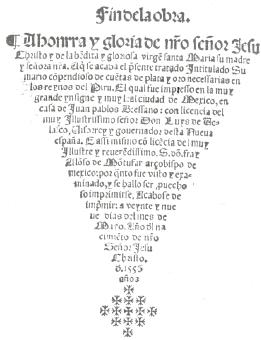 Fin de la obra.
¶ A honrra y gloria de nr̃o señor Jesu
Christo y de la bẽdita y gloriosa virgẽ santa Maria su madre
y señora nr̃a. Aq̃ se acaba el presente tratado Intitulado Su
mario cõpendioso de cuẽtas de plata y oro necessarias en
los reynos del Piru. El qual fue impresso en la muy
grande ynsigne y muy leal ciudad de Mexico, en
casa de Juan pablos Bressano: con licencia del
muy Illustrissimo señor Don Luys de Ve-
lasco, Visorey y governador desta Nueua
españa. E assi mismo cõ licẽcia del muy
Illustre y reuerẽdissimo. S. dõ. fray
Alõso de Mõtufar arçobispo de
mexico: por q̃nto fue visto y exa-
minado, y se hallo ser, puecho
so imprimirse. Acabose de
imprimir a veynte y nue
ue dias del mes de
Mayo. Año dl na
cimiẽto de nr̃o
Señor Jesu
Christo.
d. 1556
años